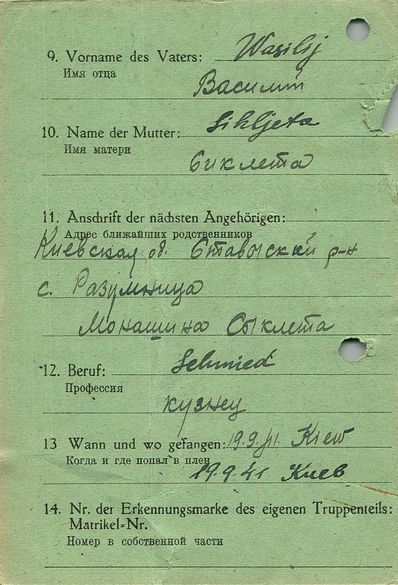 9. Vorname des Vaters: Wasilij
Имя отца
Василий
10. Name der Mutter: Sikljeta
Имя матери
Сиклета
11. Anschrift der nächsten Angehörigen:
Адрес ближайших родственников
Киевская об. Ставыский р-н
с. Разумница
Монашина Сыклета
12. Beruf: Schmied
Профессия
кузнец
13 Wann und wo gefangen: 19.9.41. Kiew
Когда и где попал в плен
19.9.41 Киев
14. Nr. der Erkennungsmarke des eigenen Truppenteils:
Matrikel-Nr.
Номер в собственной части